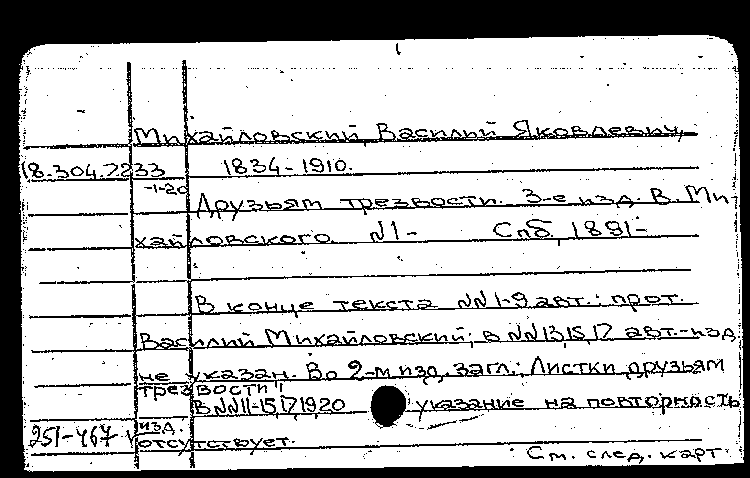 Михайловский, Василий Яковлевич,
18.304.7.233 1834-1910.
-1-20
Друзьям трезвости. 3-е изд. В. Ми-
хайловского. N1- Спб, 1891-
В конце текста NN1-9 авт.: прот.
Василий Михайловский; в NN13,15,17 авт.-изд.
не указан. Во 2-м изд. загл.: Листки друзьям
трезвости.
В NN11-15,17,19,20 указание на повторность
изд.
251-467 отсутствует.
См. след. карт.